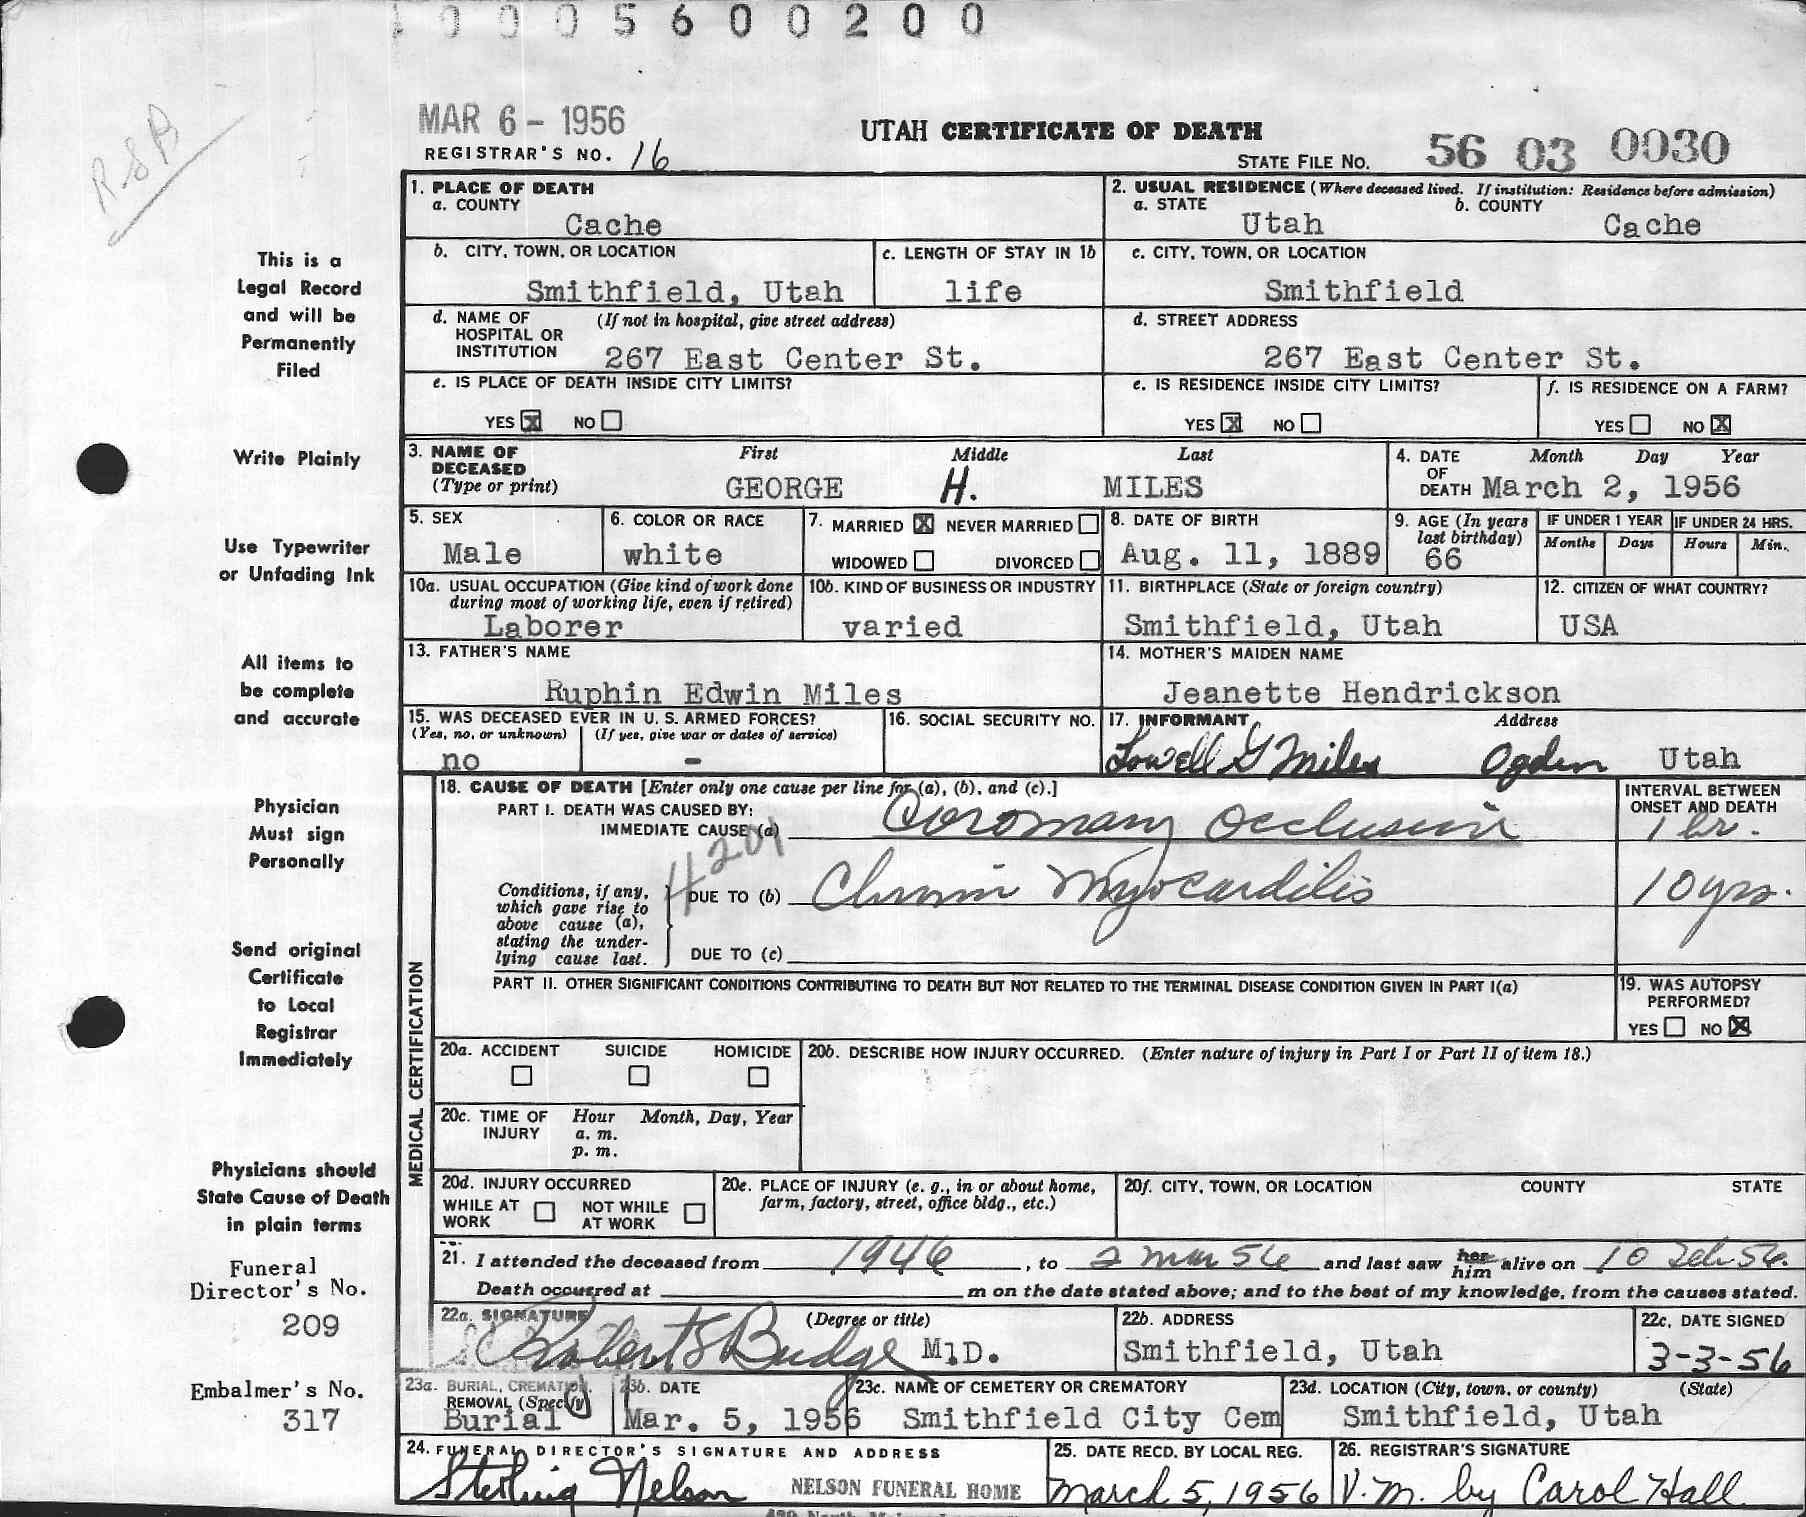 0005600200
RSB
MAR 6 - 1956
UTAH CERTIFICATE OF DEATH
REGISTRAR'S NO. 16
STATE FILE NO. 56 03 0030
This is a
Legal Record
and will be
Permanently
Filed
Write Plainly
Use Typewriter
or Unfading Ink
All items to
be complete
and accurate
Physician
Must sign
Personally
Send original
Certificate
to Local
Registrar
Immediately
Physicians should
State Cause of Death
in plain terms
Funeral
Director's No.
209
Embalmer's No.
317
1. PLACE OF DEATH
a. COUNTY
Cache
2. USUAL RESIDENCE (Where deceased lived. If institution: Residence before admission)
a. STATE Utah b. COUNTY Cache
b. CITY, TOWN, OR LOCATION
Smithfield, Utah
c. LENGTH OF STAY IN 1b
life
c. CITY, TOWN, OR LOCATION
Smithfield
d. NAME OF HOSPITAL OR INSTITUTION (If not in hospital, give street address)
267 East Center St.
d. STREET ADDRESS
267 East Center St.
e. IS PLACE OF DEATH INSIDE CITY LIMITS?
YES X NO
e. IS RESIDENCE INSIDE CITY LIMITS?
YES X NO
f. IS RESIDENCE ON A FARM?
YES NO X
3. NAME OF DECEASED (Type or print)
First Middle Last
GEORGE H. MILES
4. DATE OF DEATH Month Day Year
March 2, 1956
5. SEX
Male
6. COLOR OR RACE
white
7. MARRIED X NEVER MARRIED
WIDOWED DIVORCED
8. DATE OF BIRTH
Aug. 11, 1889
9. AGE (In years last birthday)
66
IF UNDER 1 YEAR
Months Days
IF UNDER 24 HRS.
Hours Min.
10a. USUAL OCCUPATION (Give kind of work done during most of working life, even if retired)
Laborer
10b. KIND OF BUSINESS OR INDUSTRY
varied
11. BIRTHPLACE (State or foreign country)
Smithfield, Utah
12. CITIZEN OF WHAT COUNTRY?
USA
13. FATHER'S NAME
Ruphin Edwin Miles
14. MOTHER'S MAIDEN NAME
Jeanette Hendrickson
15. WAS DECEASED EVER IN U. S. ARMED FORCES?
(Yes, no, or unknown) (If yes, give war or dates of service)
no -
16. SOCIAL SECURITY NO.
17. INFORMANT Address
Lowell G Miles Ogden Utah
MEDICAL CERTIFICATION
18. CAUSE OF DEATH [Enter only one cause per line for (a), (b), and (c).]
PART I. DEATH WAS CAUSED BY:
IMMEDIATE CAUSE (a) Coronary Occlusion
INTERVAL BETWEEN ONSET AND DEATH
1 hr.
4201
Conditions, if any, which gave rise to above cause (a), stating the underlying cause last.
DUE TO (b) Chronic Myocarditis
10 yrs.
DUE TO (c)
PART II. OTHER SIGNIFICANT CONDITIONS CONTRIBUTING TO DEATH BUT NOT RELATED TO THE TERMINAL DISEASE CONDITION GIVEN IN PART I(a)
19. WAS AUTOPSY PERFORMED?
YES NO X
20a. ACCIDENT SUICIDE HOMICIDE
20b. DESCRIBE HOW INJURY OCCURRED. (Enter nature of injury in Part I or Part II of item 18.)
20c. TIME OF INJURY Hour Month, Day, Year
a. m.
p. m.
20d. INJURY OCCURRED
WHILE AT WORK NOT WHILE AT WORK
20e. PLACE OF INJURY (e. g., in or about home, farm, factory, street, office bldg., etc.)
20f. CITY, TOWN, OR LOCATION COUNTY STATE
21. I attended the deceased from 1946, to 2 Mar 56 and last saw her him alive on 10 Feb 56.
Death occurred at m on the date stated above; and to the best of my knowledge, from the causes stated.
22a. SIGNATURE (Degree or title)
Robert S Budge M.D.
22b. ADDRESS
Smithfield, Utah
22c. DATE SIGNED
3-3-56
23a. BURIAL, CREMATION, REMOVAL (Specify)
Burial
23b. DATE
Mar. 5, 1956
23c. NAME OF CEMETERY OR CREMATORY
Smithfield City Cem
23d. LOCATION (City, town, or county) (State)
Smithfield, Utah
24. FUNERAL DIRECTOR'S SIGNATURE AND ADDRESS
Sterling Nelson NELSON FUNERAL HOME
25. DATE RECD. BY LOCAL REG.
March 5, 1956
26. REGISTRAR'S SIGNATURE
V. M. by Carol Hall